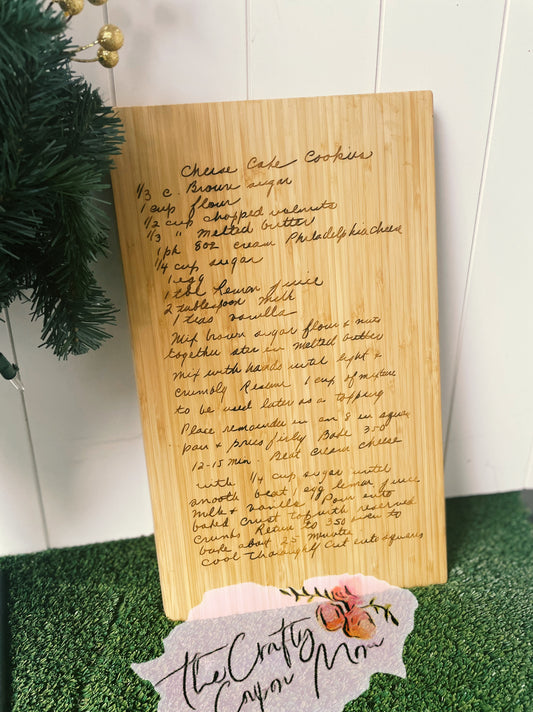 Cheese Cake Cookies
1/3 c. Brown sugar
1 cup flour
1/2 cup chopped walnuts
1/3 " melted butter
1 pk 8oz cream Philadelphia cheese
1/4 cup sugar
1 egg
1 tbl Lemon juice
2 tablespoon milk
1 teas vanilla
Mix brown sugar flour & nuts
together stir in melted butter
mix with hands until light &
crumbly Reserve 1 cup of mixture
to be used later as a topping
Place remainder in an 8 in square
pan & press firly Bake 350
12-15 min. Beat cream cheese
with 1/4 cup sugar until
smooth beat 1 egg lemon juice
milk & vanilla Pour into
baked crust Top with reserved
crumbs Return to 350 oven to
bake about 25 minutes
cool thoroughly Cut into squares
The Crafty
Coyon Mom